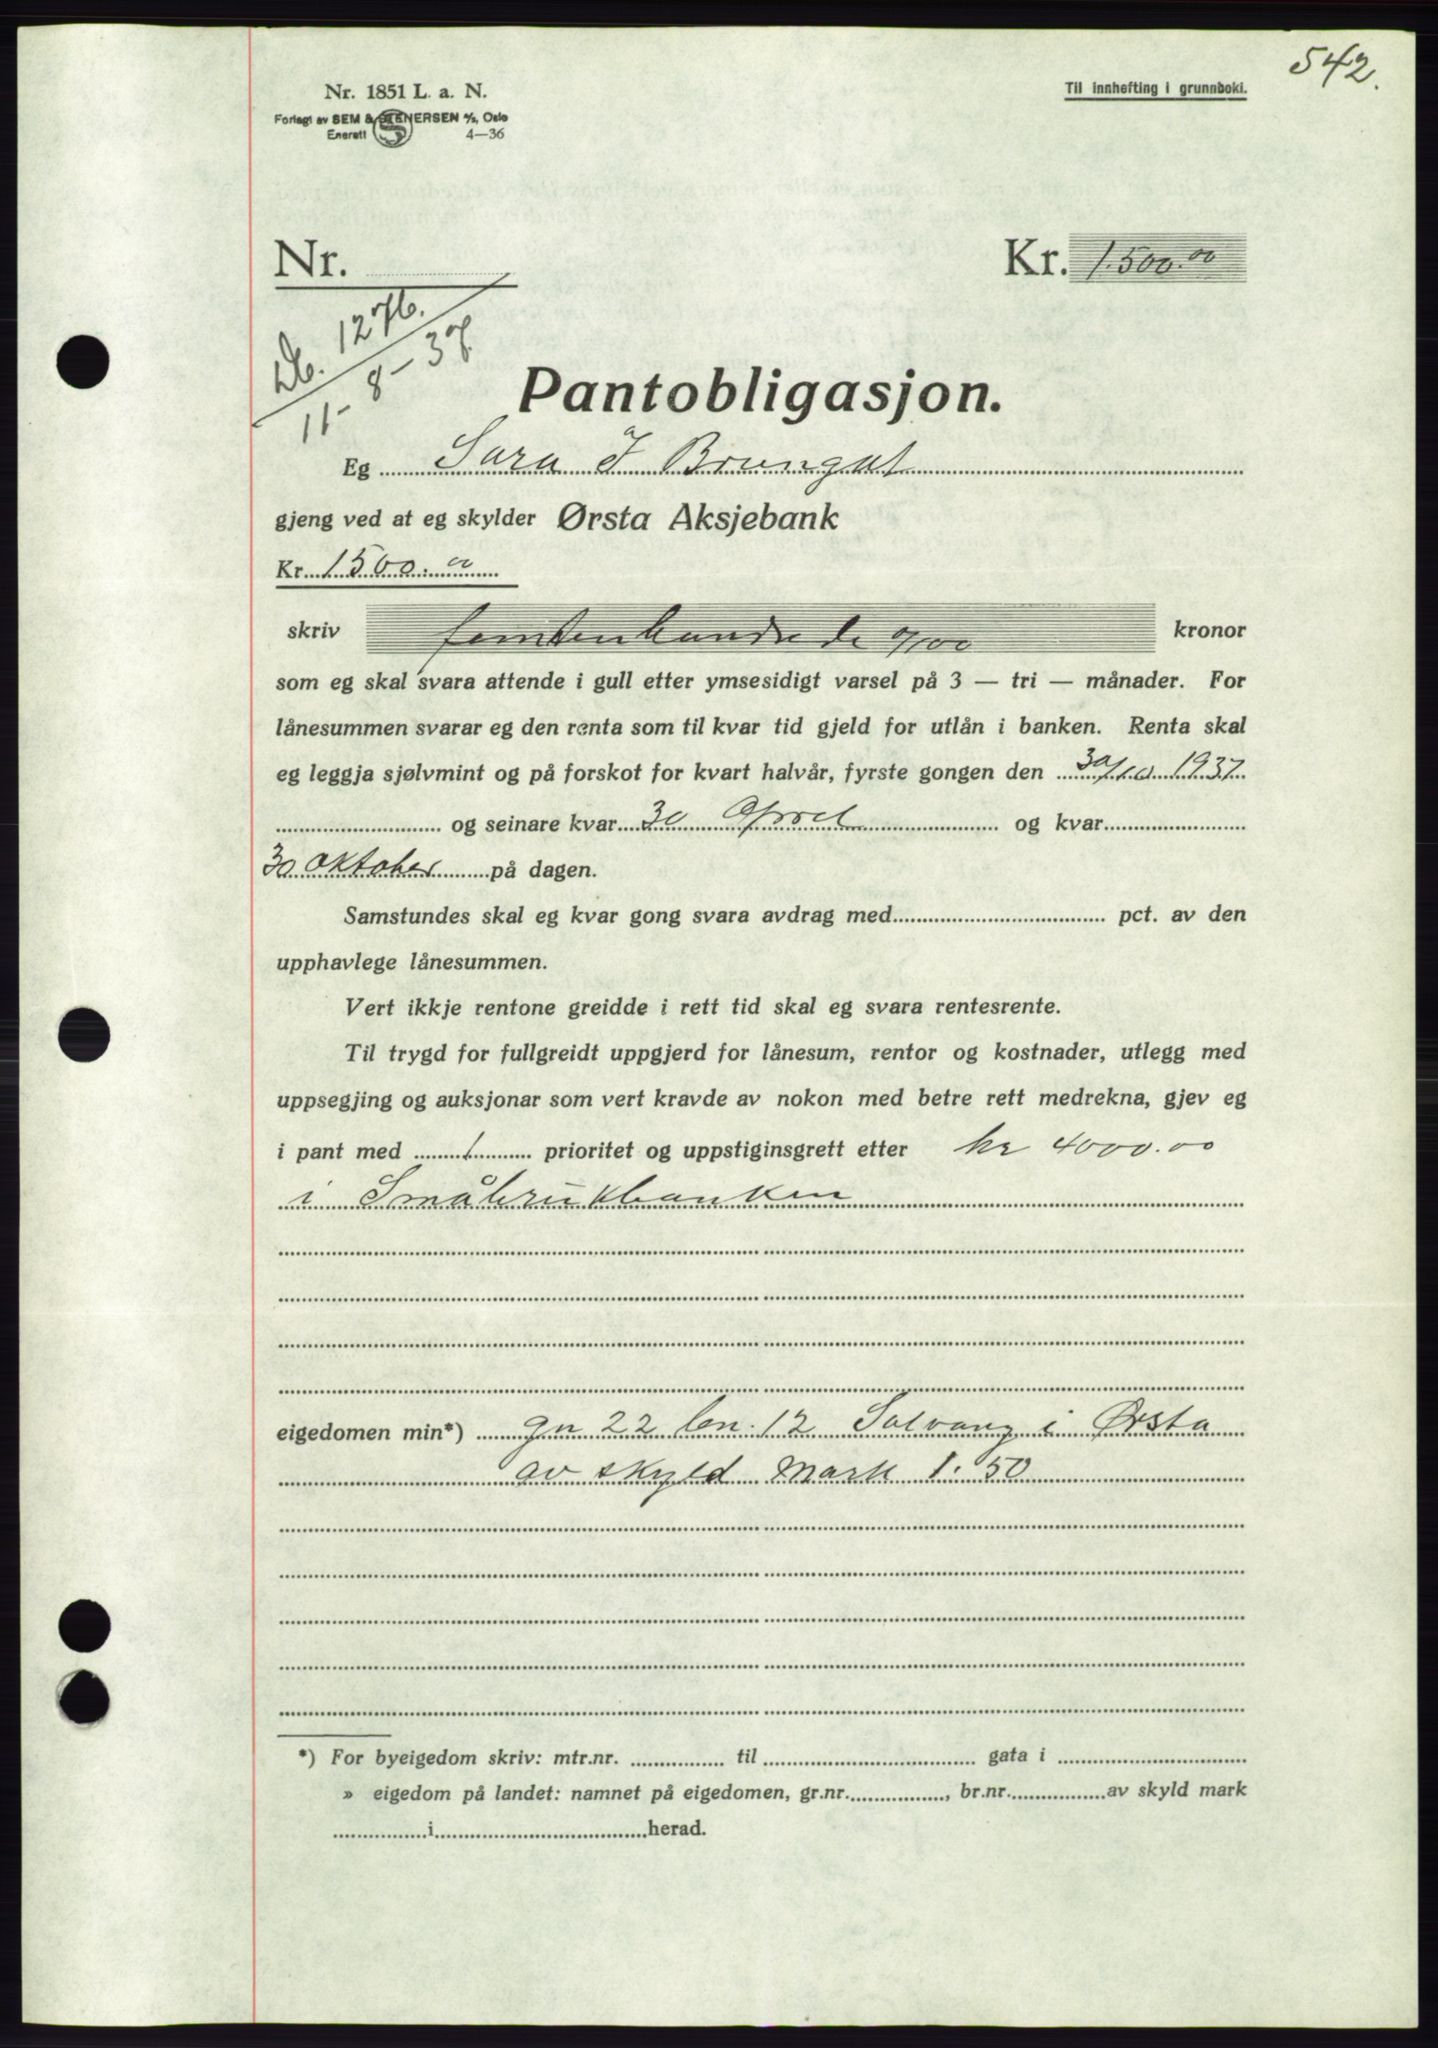 542.
Nr. 1851 L. a. N.
Til innhefting i grunnboki.
Forlagt av SEM & STENERSEN A/S, Oslo
Enerett 4—36
Nr.
Kr. 1.500.00
Db. 1276.
11-8-37
Pantobligasjon.
Eg Sara J Brungot
gjeng ved at eg skylder Ørsta Aksjebank
Kr. 1500.00
skriv femtenhundrede 0/00 kronor
som eg skal svara attende i gull etter ymsesidigt varsel på 3 — tri — månader. For
lånesummen svarar eg den renta som til kvar tid gjeld for utlån i banken. Renta skal
eg leggja sjølvmint og på forskot for kvart halvår, fyrste gongen den 30/10 1937
og seinare kvar 30 April og kvar
30 oktober på dagen.
Samstundes skal eg kvar gong svara avdrag med pct. av den
upphavlege lånesummen.
Vert ikkje rentone greidde i rett tid skal eg svara rentesrente.
Til trygd for fullgreidt uppgjerd for lånesum, rentor og kostnader, utlegg med
uppsegjing og auksjonar som vert kravde av nokon med betre rett medrekna, gjev eg
i pant med 1 prioritet og uppstiginsgrett etter kr 4000.00
i Småbrukbanken
eigedomen min*) gn 22 bn. 12 Solvang i Ørsta
av skyld mark 1.50
*) For byeigedom skriv: mtr.nr. til gata i
» eigedom på landet: namnet på eigedomen, gr.nr. , br.nr. av skyld mark
i herad.